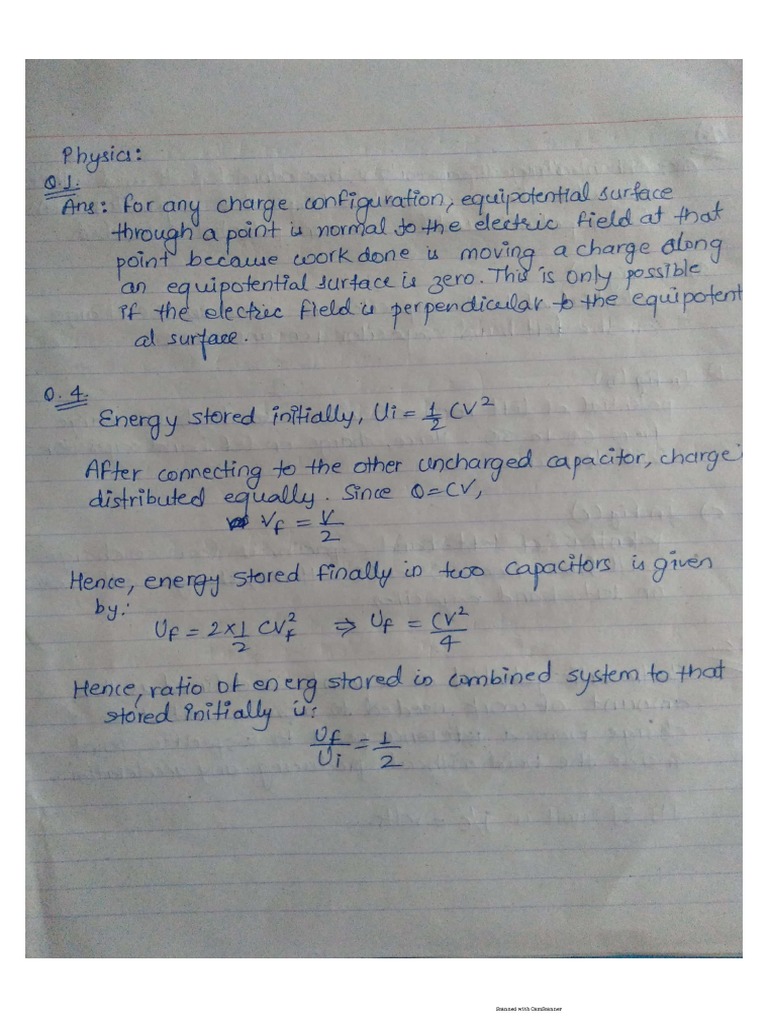 Physics:
Q.1.
Ans: For any charge configuration, equipotential surface
through a point is normal to the electric field at that
point because work done is moving a charge along
an equipotential surface is zero. This is only possible
if the electric field is perpendicular to the equipotent
al surface.
Q.4.
Energy stored initially, Ui = 1/2 CV²
After connecting to the other uncharged capacitor, charge
distributed equally. Since Q=CV,
Vf = V/2
Hence, energy stored finally in two capacitors is given
by:
Uf = 2×1/2 CVf² ⇒ Uf = CV²/4
Hence, ratio of energ stored in combined system to that
stored initially is:
Uf/Ui = 1/2
Scanned with CamScanner